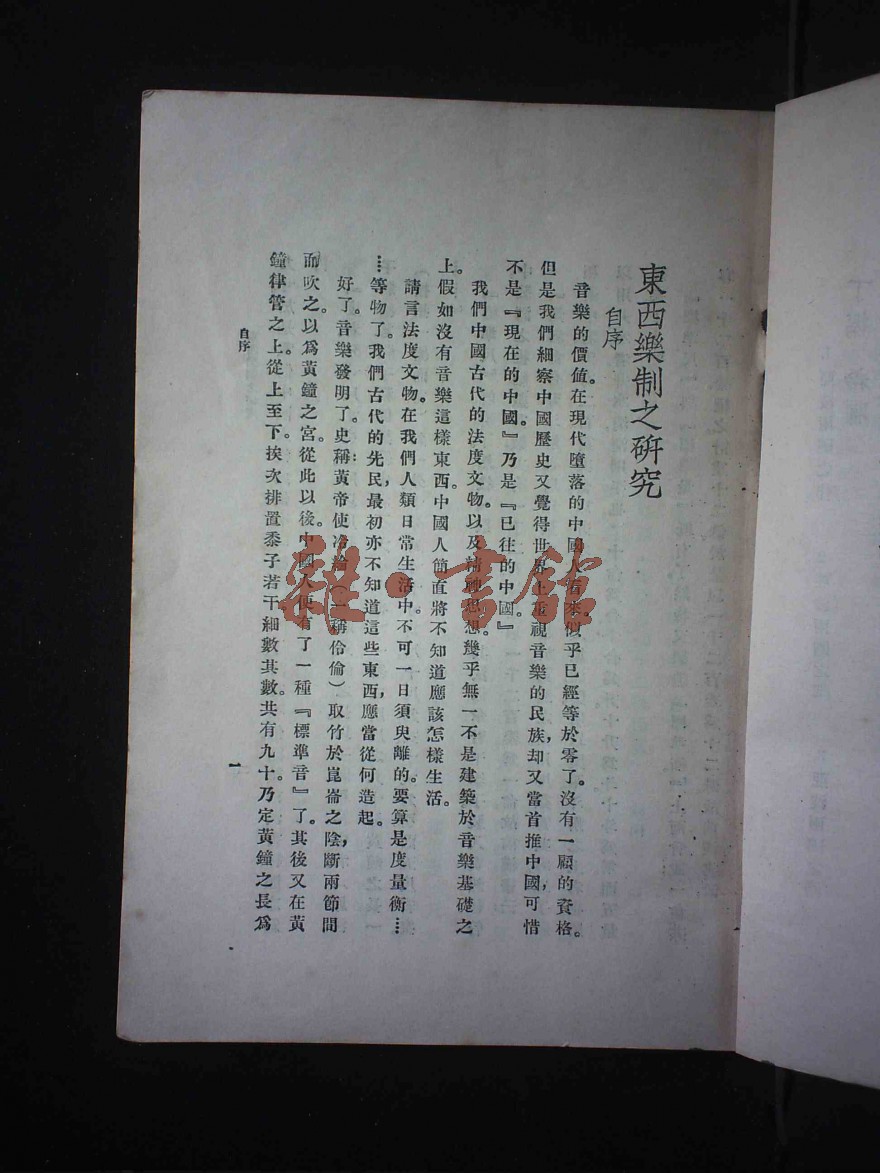 東西樂制之硏究
自序
音樂的價值。在現代墮落的中國人看來。似乎已經等於零了。沒有一顧的資格。
但是我們細察中國歷史又覺得世界上重視音樂的民族,却又當首推中國,可惜
不是『現在的中國。』乃是『已往的中國。』
我們中國古代的法度文物。以及精神思想。幾乎無一不是建築於音樂基礎之
上。假如沒有音樂這樣東西。中國人簡直將不知道應該怎樣生活。
請言法度文物。在我們人類日常生活中。不可一日須臾離的。要算是度量衡…
…等物了。我們古代的先民,最初亦不知道這些東西,應當從何造起。
好了。音樂發明了。史稱:黃帝使冷綸(一稱伶倫)取竹於崑崙之陰,斷兩節間
而吹之。以爲黃鐘之宮。從此以後。中國人便有了一種『標準音』了。其後又在黃
鐘律管之上。從上至下。挨次排置黍子若干細數其數。共有九十。乃定黃鐘之長爲
自序
一
雜·書館